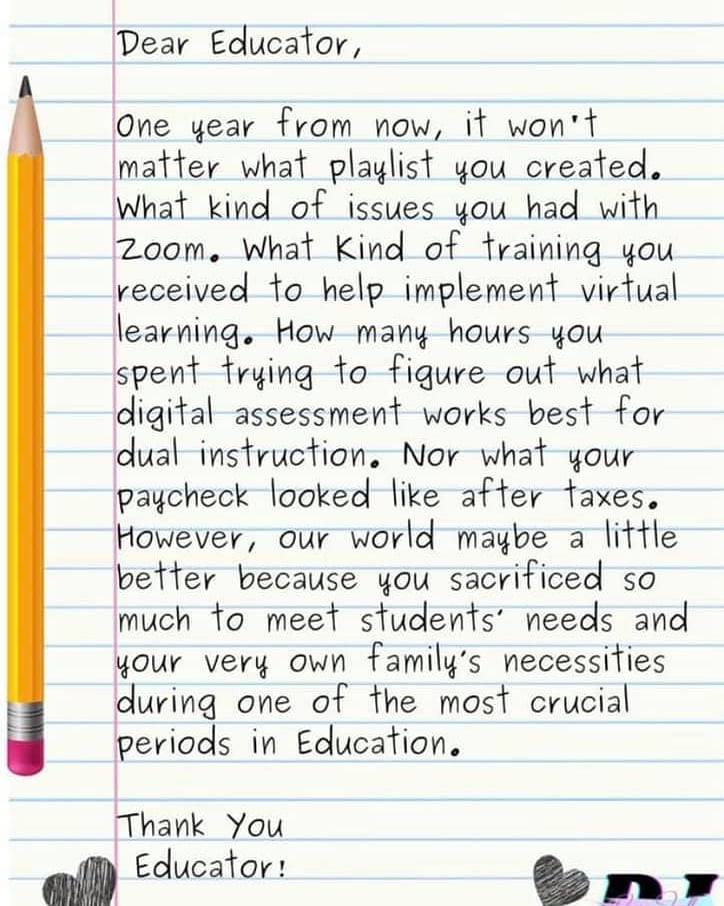 Dear Educator,
One year from now, it won't
matter what playlist you created.
What kind of issues you had with
Zoom. What Kind of training you
received to help implement virtual
learning. How many hours you
spent trying to figure out what
digital assessment works best for
dual instruction. Nor what your
paycheck looked like after taxes.
However, our world maybe a little
better because you sacrificed so
much to meet students' needs and
your very own family's necessities
during one of the most crucial
periods in Education.
Thank You
Educator!